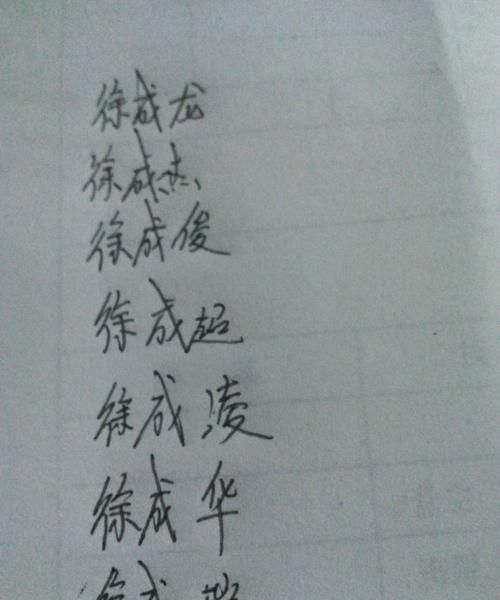 徐成龙
徐成杰
徐成俊
徐成超
徐成凌
徐成华
徐成